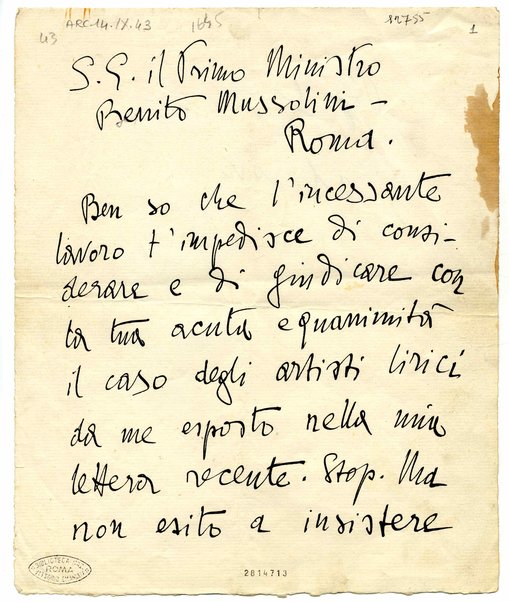 ARC.14.IX.43
1645
82755
43
1
S. E. il Primo Ministro
Benito Mussolini –
Roma.
Ben so che l'incessante
lavoro t'impedisce di consi-
derare e di giudicare con
la tua acuta equanimità
il caso degli artisti lirici
da me esposto nella mia
lettera recente. Stop. Ma
non esito a insistere
BIBLIOTECA
ROMA
VITTORIO EMANUELE
2814713